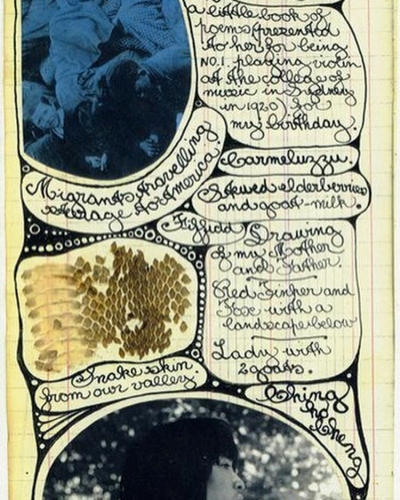 a little book of
poems presented
to her for being
No.1. playing violin
at the college of
music in Sydney
in 1920 for
my birthday.
Carmeluzzu.
Migrants travelling
steerage to America.
Stewed elderberries
and goat-milk.
Drawing
of my Mother
and Father.
Red Finger and
Toe with a
landscape below
Lady with
2 goats.
Snake skin
from our valley.
Ching
ho
cheng